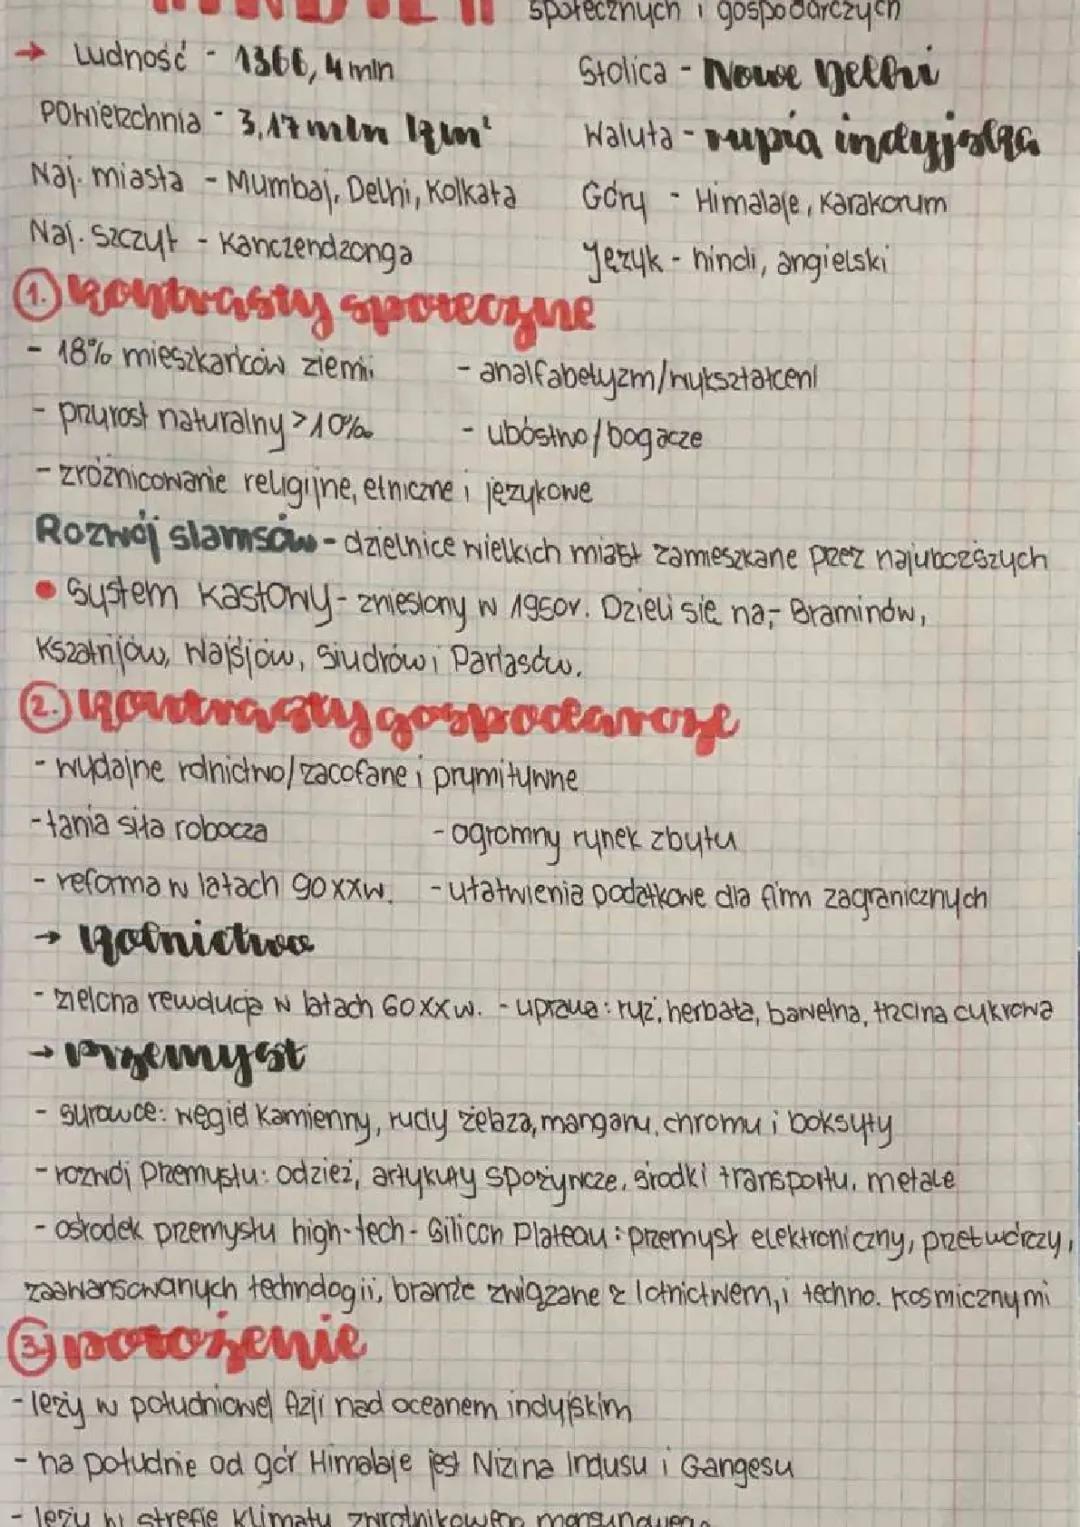 społecznych i gospodarczych
→ Ludność - 1366,4 mln
Stolica - Nowe Delhi
Powierzchnia - 3,17 mln km²
Waluta - rupia indyjska
Naj. miasta - Mumbaj, Delhi, Kolkata
Góry - Himalaje, Karakorum
Naj. szczyt - Kanczendzonga
Język - hindi, angielski
1. kontrasty społeczne
- 18% mieszkańców ziemi
- analfabetyzm/wykształceni
- przyrost naturalny > 10‰
- ubóstwo/bogacze
- zróżnicowanie religijne, etniczne i językowe
Rozwój slamsów - dzielnice wielkich miast zamieszkane przez najuboższych
• System kastowy - zniesiony w 1950r. Dzieli się na; - Braminów,
Kszatrijów, Wajśjów, Siudrów i Pariasów.
2. kontrasty gospodarcze
- wydajne rolnictwo/zacofane i prymitywne
- tania siła robocza
- ogromny rynek zbytu
- reforma w latach 90 XX w.
- ułatwienia podatkowe dla firm zagranicznych
→ Rolnictwo
- zielona rewolucja w latach 60 XX w. - uprawa: ryż, herbata, bawełna, trzcina cukrowa
→ Przemysł
- surowce: węgiel kamienny, rudy żelaza, manganu, chromu i boksyty
- rozwój przemysłu: odzież, artykuły spożywcze, środki transportu, metale
- ośrodek przemysłu high-tech - Silicon Plateau: przemysł elektroniczny, przetwórczy,
zaawansowanych technologii, branże związane z lotnictwem, i techno. kosmicznymi
3. położenie
- leży w południowej Azji nad oceanem indyjskim
- na południe od gór Himalaje jest Nizina Indusu i Gangesu
- leży w strefie klimatu zwrotnikowego monsunowego